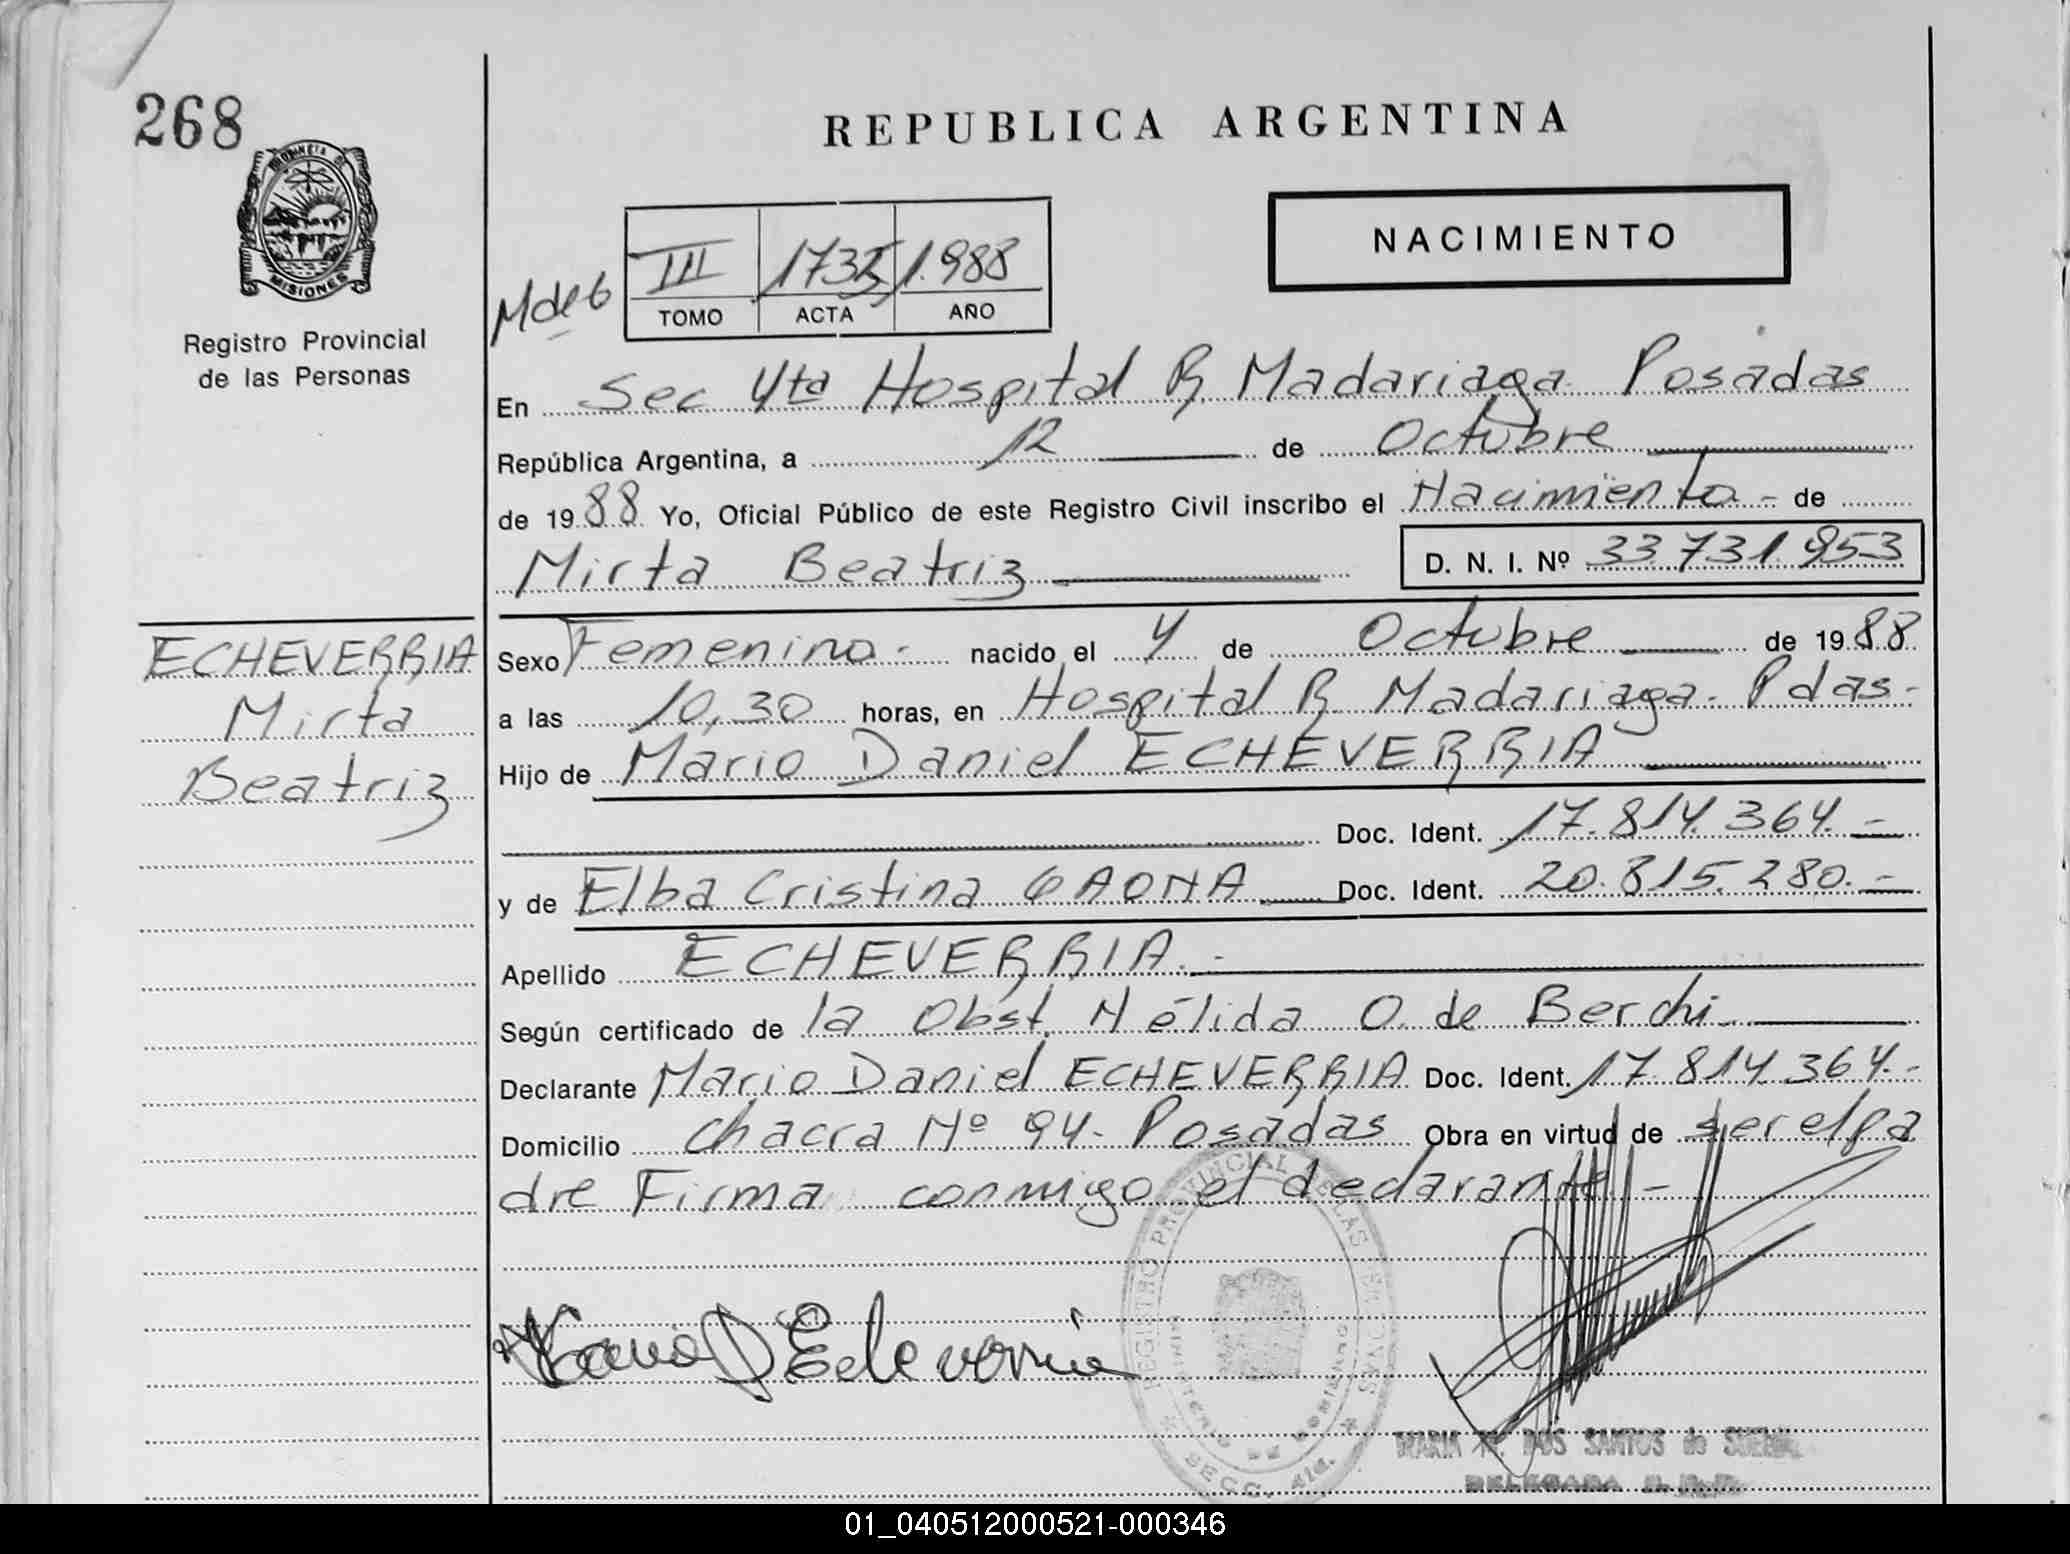 268
REPUBLICA ARGENTINA
PROVINCIA DE
MISIONES
Registro Provincial
de las Personas
NACIMIENTO
III 1735 1.988
TOMO ACTA AÑO
En Sec 4ta Hospital R Madariaga Posadas
República Argentina, a 12 de Octubre
de 1988 Yo, Oficial Público de este Registro Civil inscribo el Nacimiento - de
Mirta Beatriz D. N. I. Nº 33.731.953
ECHEVERRIA
Mirta
Beatriz
Sexo Femenino.- nacido el 4 de Octubre de 1988.
a las 10,30 horas, en Hospital R Madariaga- Pdas-
Hijo de Mario Daniel ECHEVERRIA
Doc. Ident. 17.814.364.-
y de Elba Cristina GAONA Doc. Ident. 20.815.280.-
Apellido ECHEVERRIA.-
Según certificado de la Obst. Nélida O. de Berchi
Declarante Mario Daniel ECHEVERRIA Doc. Ident. 17.814.364.-
Domicilio chacra Nº 94- Posadas Obra en virtud de ser el pa
dre Firma conmigo el declarante -
Mario D Echeverria
REGISTRO PROVINCIAL DE LAS PERSONAS
SECC. 4ta.
MARIA DOS SANTOS de
DELEGADA
01_040512000521-000346